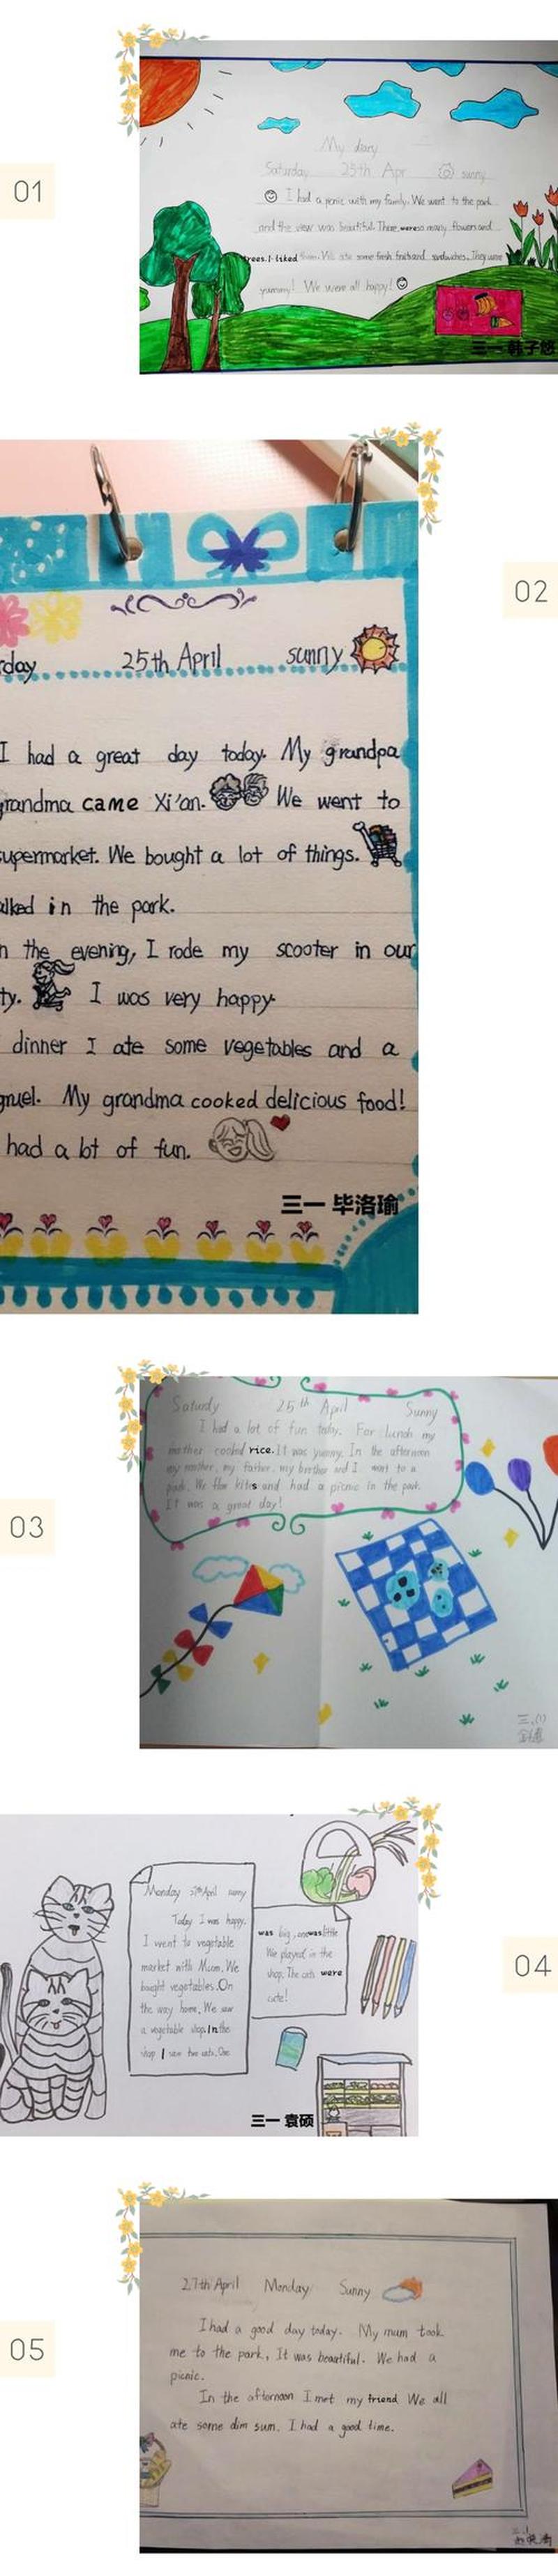 01
My diary
Saturday 25th Apr sunny
I had a picnic with my family. We went to the park
and the view was beautiful. There were so many flowers and
trees. I liked them. We ate some fresh fruit and sandwiches. They were
yummy! We were all happy!
三一 韩子悠
02
rday 25th April sunny
I had a great day today. My grandpa
grandma came Xi'an. We went to
supermarket. We bought a lot of things.
alked in the park.
n the evening, I rode my scooter in our
ty. I was very happy.
dinner I ate some vegetables and a
gruel. My grandma cooked delicious food!
had a lot of fun.
三一 毕洛瑜
03
Saturdy 25th April Sunny
I had a lot of fun today. For lunch my
mother cooked rice. It was yummy. In the afternoon
my mother, my father, my brother and I went to a
park. We flew kites and had a picnic in the park.
It was a great day!
三、(1)
04
Monday 27th April sunny
Today I was happy.
I went to vegetable
market with Mum. We
bought vegetables. On
the way home, We saw
a vegetable shop. In the
shop I saw two cats. One
was big, one was little
We played in the
shop. The cats were
cute!
三一 袁硕
05
27th April Monday Sunny
I had a good day today. My mum took
me to the park, It was beautiful. We had a
picnic.
In the afternoon I met my friend We all
ate some dim sum. I had a good time.